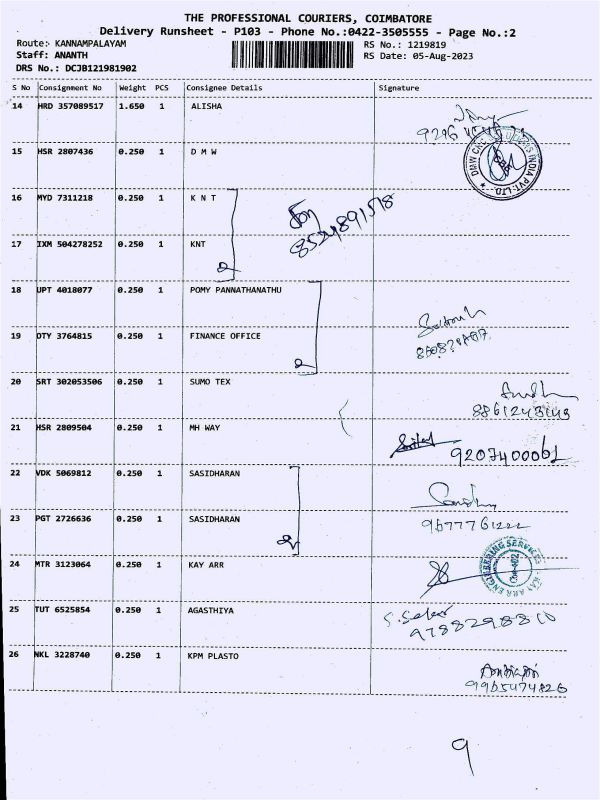 THE PROFESSIONAL COURIERS, COIMBATORE
Delivery Runsheet - P103 - Phone No.:0422-3505555 - Page No.:2
Route: KANNAMPALAYAM RS No.: 1219819
Staff: ANANTH RS Date: 05-Aug-2023
DRS No.: DCJB121981902
S No Consignment No Weight PCS Consignee Details Signature
14 HRD 357089517 1.650 1 ALISHA
15 HSR 2807436 0.250 1 D M W
16 MYD 7311218 0.250 1 K N T
17 IXM 504278252 0.250 1 KNT
2
18 UPT 4018077 0.250 1 POMY PANNATHANATHU
19 OTY 3764815 0.250 1 FINANCE OFFICE
2
20 SRT 302053506 0.250 1 SUMO TEX
8861243143
21 HSR 2809504 0.250 1 MH WAY
9207400061
22 VDK 5069812 0.250 1 SASIDHARAN
23 PGT 2726636 0.250 1 SASIDHARAN
2
24 MTR 3123064 0.250 1 KAY ARR
KAY ARR ENGINEERING SERVICES
25 TUT 6525854 0.250 1 AGASTHIYA
9788298810
26 NKL 3228740 0.250 1 KPM PLASTO
9965474826
9